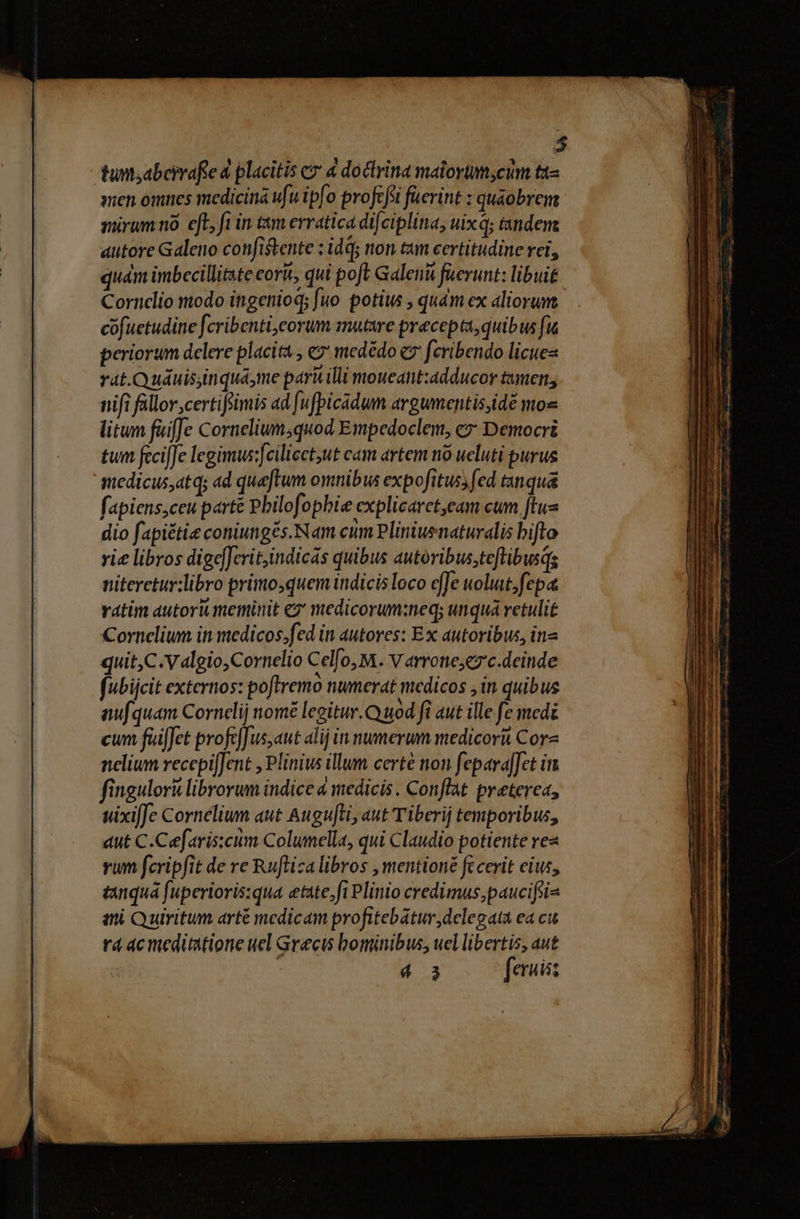 5
tum,aberraſſe à placitis &amp; à doctrina maiorũm,cùm ta=
men omnes medicinã uſu ipſo profeſsi fuerint : quãobrem
mirum nõ eſt, ſi in tam erratica diſciplina, uixq́; tandem
autore Galeno conſiſtente : idq́; non tam certitudine rei,
quàm imbecillitate eorũ, qui poſt Galenũ fuerunt: libuit
Cornelio modo ingenioq́; ſuo potius , quàm ex aliorum
cõſuetudine ſcribenti,eorum mutare præcepta,quibus ſu
periorum delere placita , &amp; medẽdo &amp; ſcribendo licue=
rat.Quãuis,inquã,me parũ illi moueant:adducor tamen,
niſi fallor,certiſsimis ad ſuſpicãdum argumentis,idẽ mo=
litum fuiſſe Cornelium,quod Empedoclem, &amp; Democri
tum feciſſe legimus:ſcilicet,ut eam artem nõ ueluti purus
medicus,atq́; ad quæſtum omnibus expoſitus,ſed tanquã
ſapiens,ceu partẽ Philoſophiæ explicaret,eam cum ſtu=
dio ſapiẽtiæ coniungẽs.Nam cùm Plinius naturalis hiſto
riæ libros digeſſerit,indicãs quibus autoribus,teſtibusq́;
niteretur:libro primo,quem indicis loco eſſe uoluit,ſepa
ratim autorũ meminit &amp; medicorum:neq; unquã retulit
Cornelium in medicos,ſed in autores: Ex autoribus, in=
quit,C.Valgio,Cornelio Celſo,M. Varrone,&amp;c.deinde
ſubijcit externos: poſtremò numerat medicos , in quibus
nuſquam Cornelij nomẽ legitur.Quòd ſi aut ille ſe medi
cum fuiſſet profeſſus,aut alij in numerum medicorũ Cor=
nelium recepiſſent , Plinius illum certè non ſeparaſſet in
ſingulorũ librorum indice à medicis. Conſtat præterea,
uixiſſe Cornelium aut Auguſti, aut Tiberij temporibus,
aut C.Cæſaris:cùm Columella, qui Claudio potiente re=
rum ſcripſit de re Ruſtica libros , mentionẽ fecerit eius,
tanquã ſuperioris:qua ætate,ſi Plinio credimus,pauciſsi=
mi Quiritum artẽ medicam profitebãtur,delegata ea cu
ra ac meditatione uel Græcis hominibus, uel libertis, aut
a 3 ſeruis: